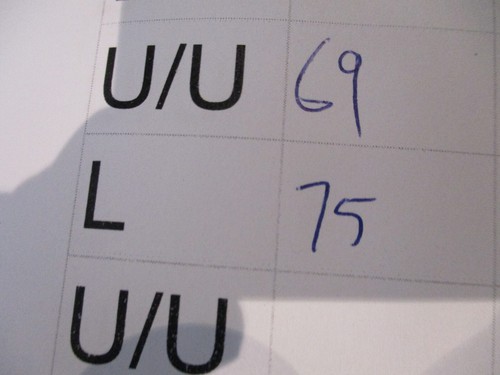 U/U 69
L 75
U/U